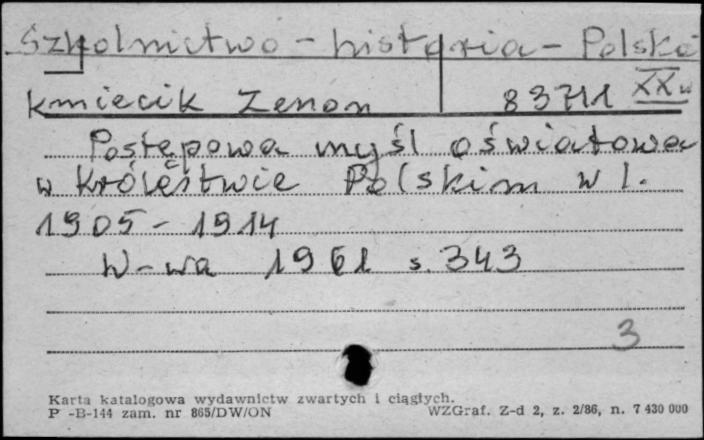 Szkolnictwo - historia - Polska
XX w
Kmiecik Zenon 83711
Postępowa myśl oświatowa
w Królestwie Polskim w l.
1905 - 1914
W-wa 1961 s. 343
3
Karta katalogowa wydawnictw zwartych i ciągłych.
P -B-144 zam. nr 865/DW/ON WZGraf. Z-d 2, z. 2/86, n. 7 430 000